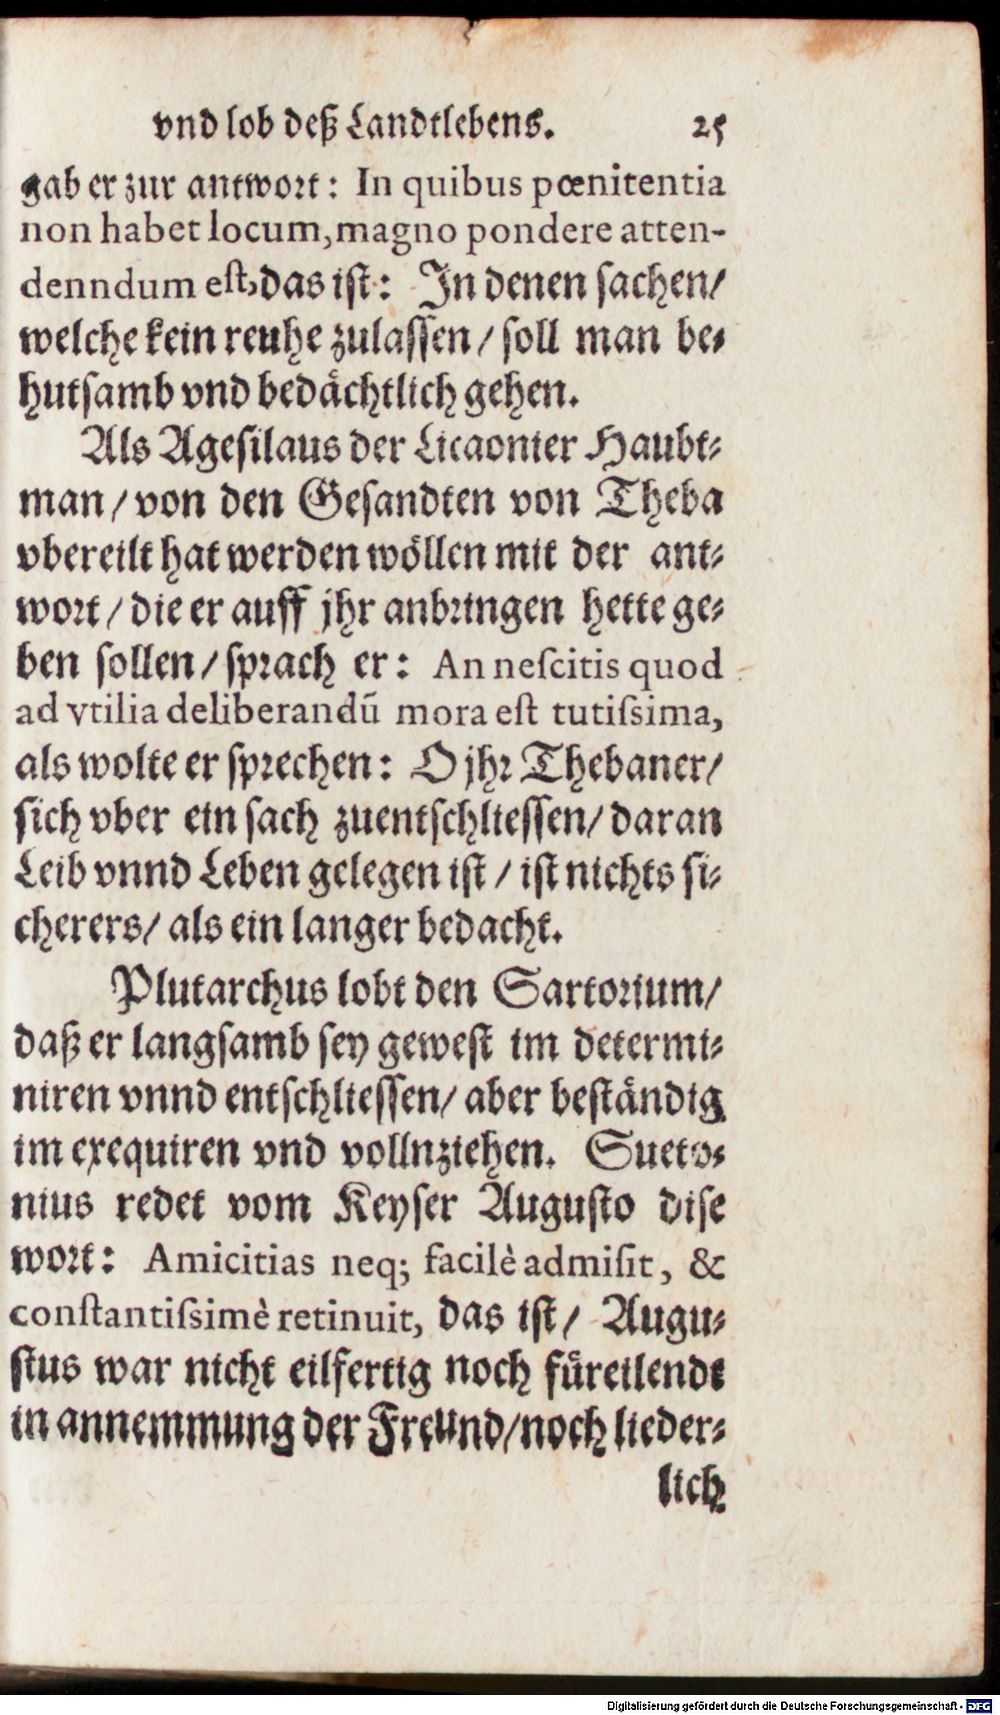 vnd lob deß Landtlebens. 25
gab er zur antwort: In quibus pœnitentia
non habet locum, magno pondere atten-
denndum est, das ist: In denen sachen/
welche kein reuhe zulassen/ soll man be-
hutsamb vnd bedächtlich gehen.
Als Agesilaus der Licaonier Haubt-
man/ von den Gesandten von Theba
vbereilt hat werden wöllen mit der ant-
wort/ die er auff jhr anbringen hette ge-
ben sollen/ sprach er: An nescitis quod
ad vtilia deliberandū mora est tutissima,
als wolte er sprechen: O jhr Thebaner/
sich vber ein sach zuentschliessen/ daran
Leib vnnd Leben gelegen ist/ ist nichts si-
cherers/ als ein langer bedacht.
Plutarchus lobt den Sartorium/
daß er langsamb sey gewest im determi-
niren vnnd entschliessen/ aber beständig
im exequiren vnd vollnziehen. Sueto-
nius redet vom Keyser Augusto dise
wort: Amicitias neq; facilè admisit, &
constantissimè retinuit, das ist/ Augu-
stus war nicht eilfertig noch füreilendt
in annemmung der Freund/ noch lieder-
lich
Digitalisierung gefördert durch die Deutsche Forschungsgemeinschaft - DFG